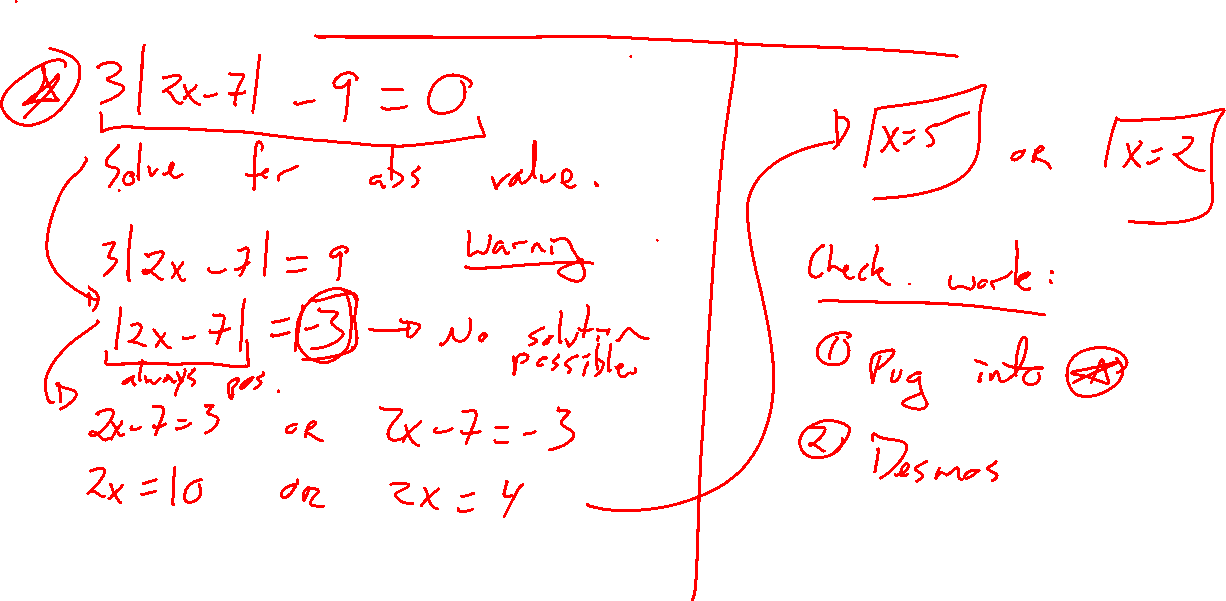 3|2x-7| - 9 = 0
Solve for abs value.
3|2x-7| = 9
Warning
|2x-7| = -3 → No solution possible
always pos.
2x-7=3 or 2x-7=-3
2x=10 or 2x=4
x=5 or x=2
Check work:
① Pug into ☆
② Desmos